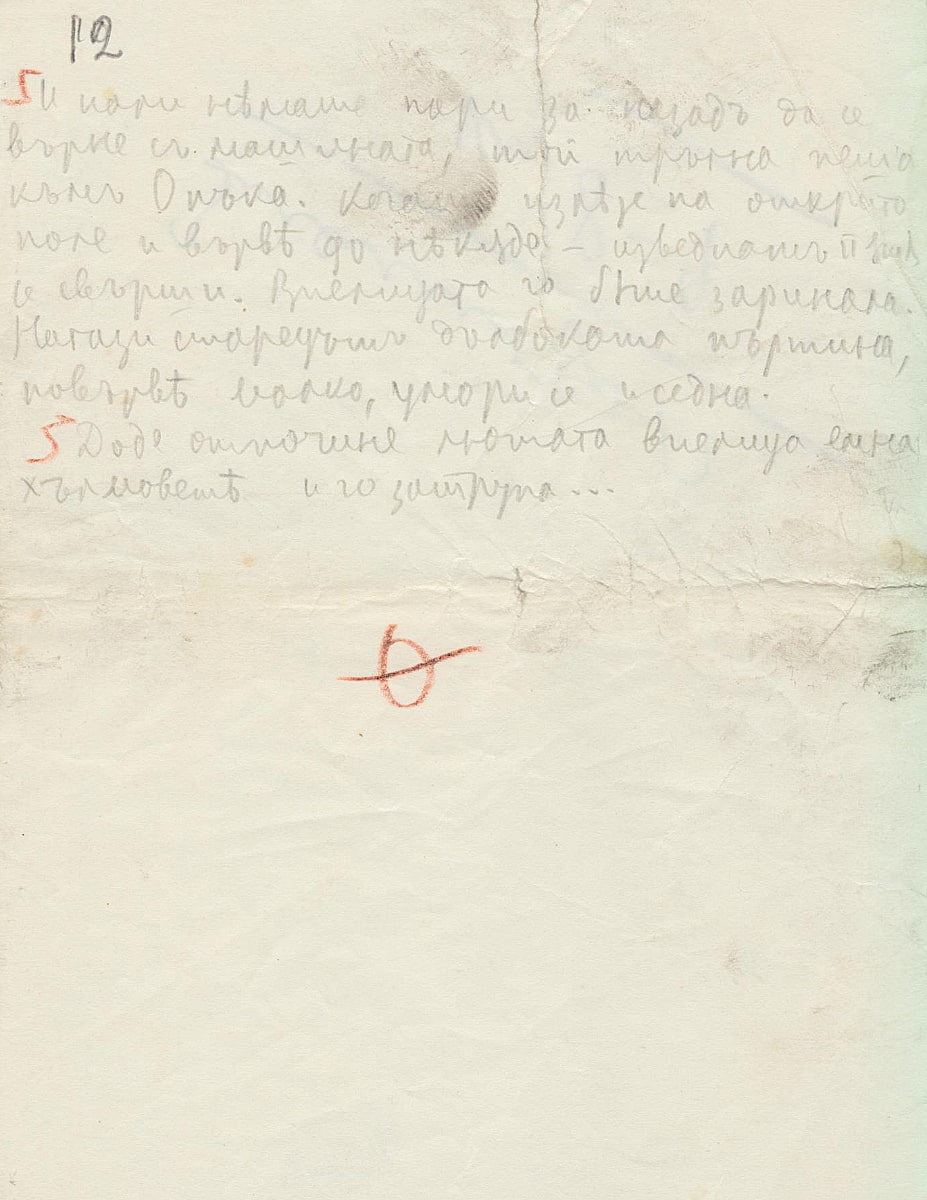 12
И пари нѣмаше пари за назадъ да се
върне съ машината, той тръгна пеша
към Опъка. Когато излѣзе на открито
поле и вървѣ до нѣкѫде – изведнажъ
се свърши. Виелицата го бѣше заринала.
Нагази старецътъ дълбоката пъртина,
повървѣ малко, умори се и седна.
Доде отпочине лютата виелица
хълмоветѣ и го затрупа...